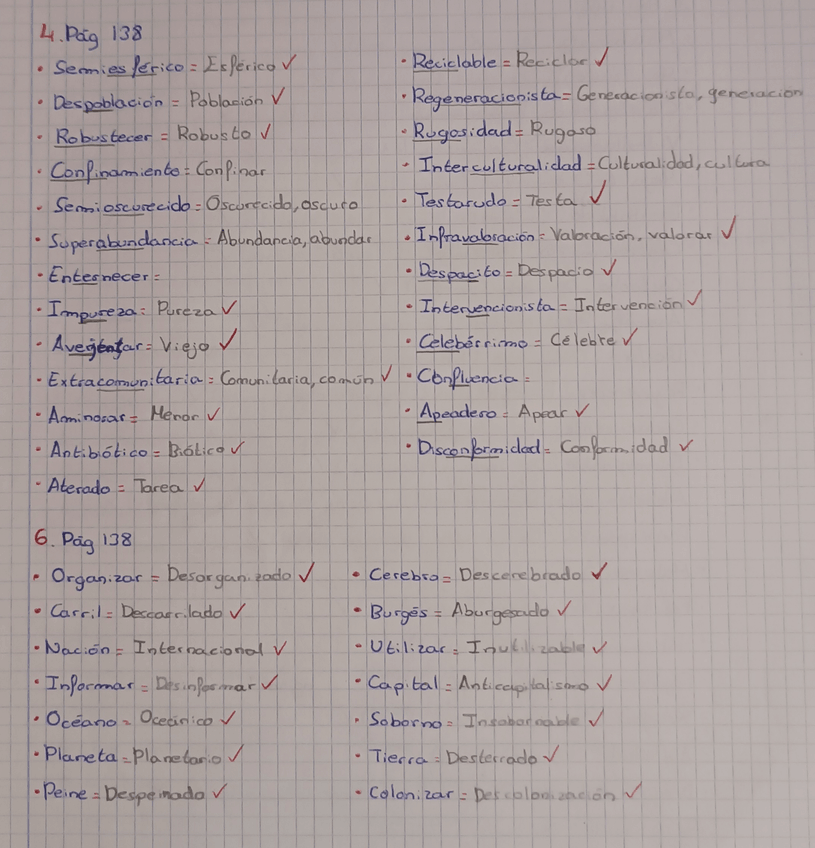 4. Pág 138
• Semiesférico = Esférico ✓
• Despoblación = Población ✓
• Robustecer = Robusto ✓
• Confinamiento = Confinar
• Semioscurecido = Oscurecido, oscuro
• Superabundancia = Abundancia, abundar
• Enternecer =
• Impureza = Pureza ✓
• Avejentar = Viejo ✓
• Extracomunitaria = Comunitaria, común ✓
• Aminorar = Menor ✓
• Antibiótico = Biótico ✓
• Aterado = Tarea ✓
• Reciclable = Reciclar ✓
• Regeneracionista = Generacionista, generacion
• Rugosidad = Rugoso
• Interculturalidad = Culturalidad, cultura
• Testarudo = Testa ✓
• Infravaloración = Valoración, valorar ✓
• Despacito = Despacio ✓
• Intervencionista = Intervención ✓
• Celebérrimo = Célebre ✓
• Confluencia =
• Apeadero = Apear ✓
• Disconformidad = Conformidad ✓
6. Pág 138
• Organizar = Desorganizado ✓
• Carril = Descarrilado ✓
• Nación = Internacional ✓
• Informar = Desinformar ✓
• Océano = Oceánico ✓
• Planeta = Planetario ✓
• Peine = Despeinado ✓
• Cerebro = Descerebrado ✓
• Burgés = Aburgesado ✓
• Utilizar = Inutilizable ✓
• Capital = Anticapitalismo ✓
• Soborno = Insobornable ✓
• Tierra = Desterrado ✓
• Colonizar = Descolonización ✓